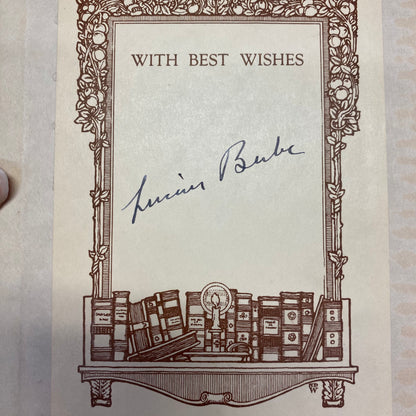 WITH BEST WISHES
Lucius Beebe